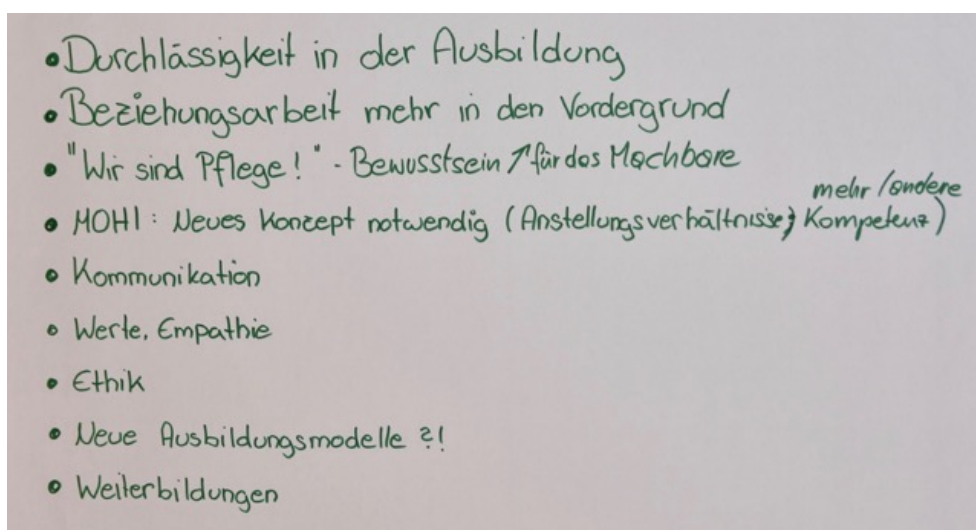 • Durchlässigkeit in der Ausbildung
• Beziehungsarbeit mehr in den Vordergrund
• "Wir sind Pflege!" - Bewusstsein ↗ für das Machbare
mehr / andere
• MOHI: Neues Konzept notwendig (Anstellungsverhältnisse; Kompetenz)
• Kommunikation
• Werte, Empathie
• Ethik
• Neue Ausbildungsmodelle ?!
• Weiterbildungen